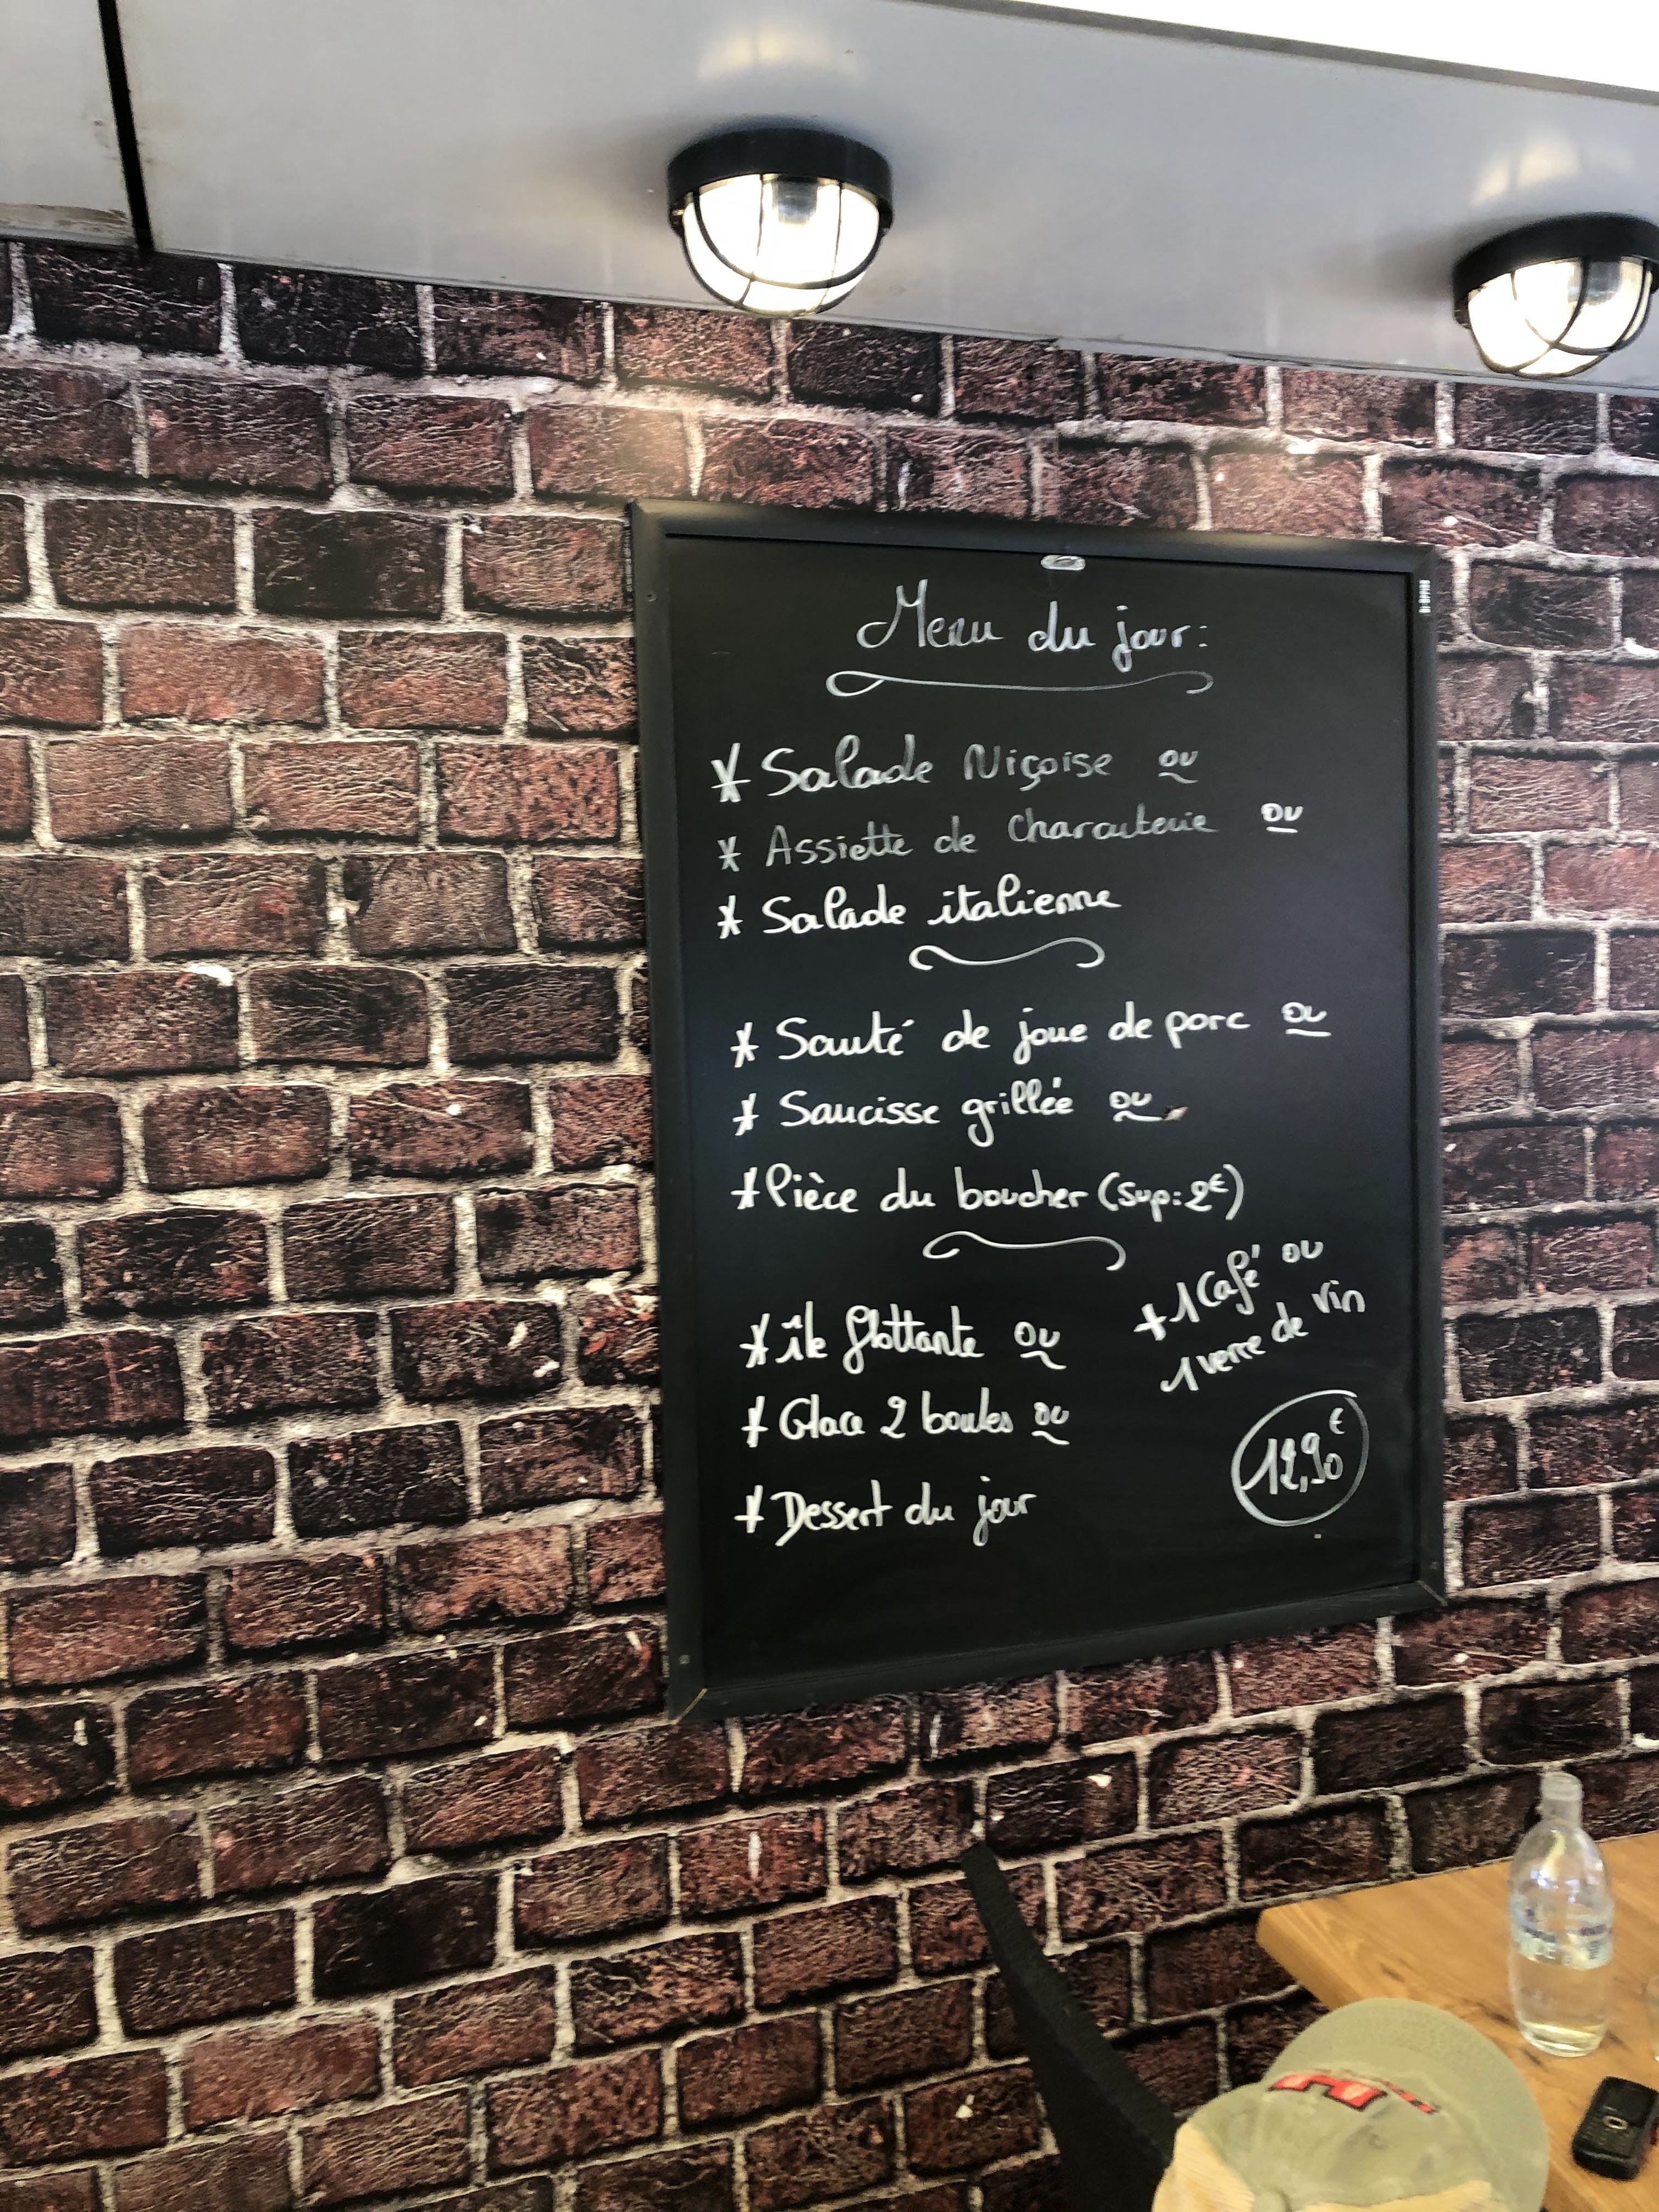 Menu du jour:
* Salade Niçoise ou
* Assiette de Charcuterie ou
* Salade italienne
* Sauté de joue de porc ou
* Saucisse grillée ou
* Pièce du boucher (Sup: 2€)
* île flottante ou
* Glace 2 boules ou
* Dessert du jour
+ 1 Café ou
1 verre de vin
12,90€